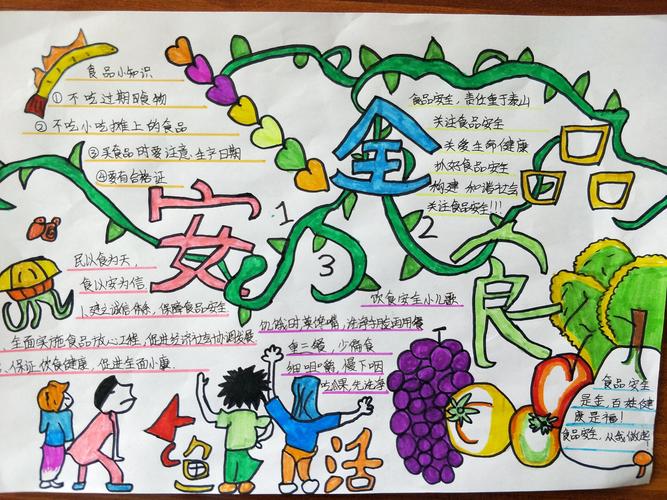 食品小知识
①不吃过期食物
②不吃小吃摊上的食品
③买食品时要注意生产日期
④要有合格证
食品安全，责任重于泰山
关注食品安全
关爱生命健康
抓好食品安全
构建和谐社会
关注食品安全!!!
食品
安全
1
2
3
民以食为天，
食以安为信，
建立诚信体系，保障食品安全
全面实施食品放心工程，促进经济社会协调发展
保证饮食健康，促进全面小康。
饮食安全小儿歌
饥饿时莫馋嘴，洗净手脸再用餐
餐，少偏食
细咀嚼，慢下咽
吃瓜果，先洗净
食品安全
是金，百姓健
康是福！
食品安全，从我做起
渔
活